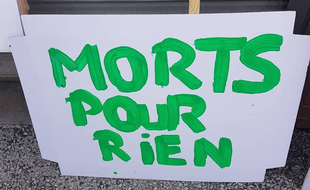 MORTS
POUR
RiEN